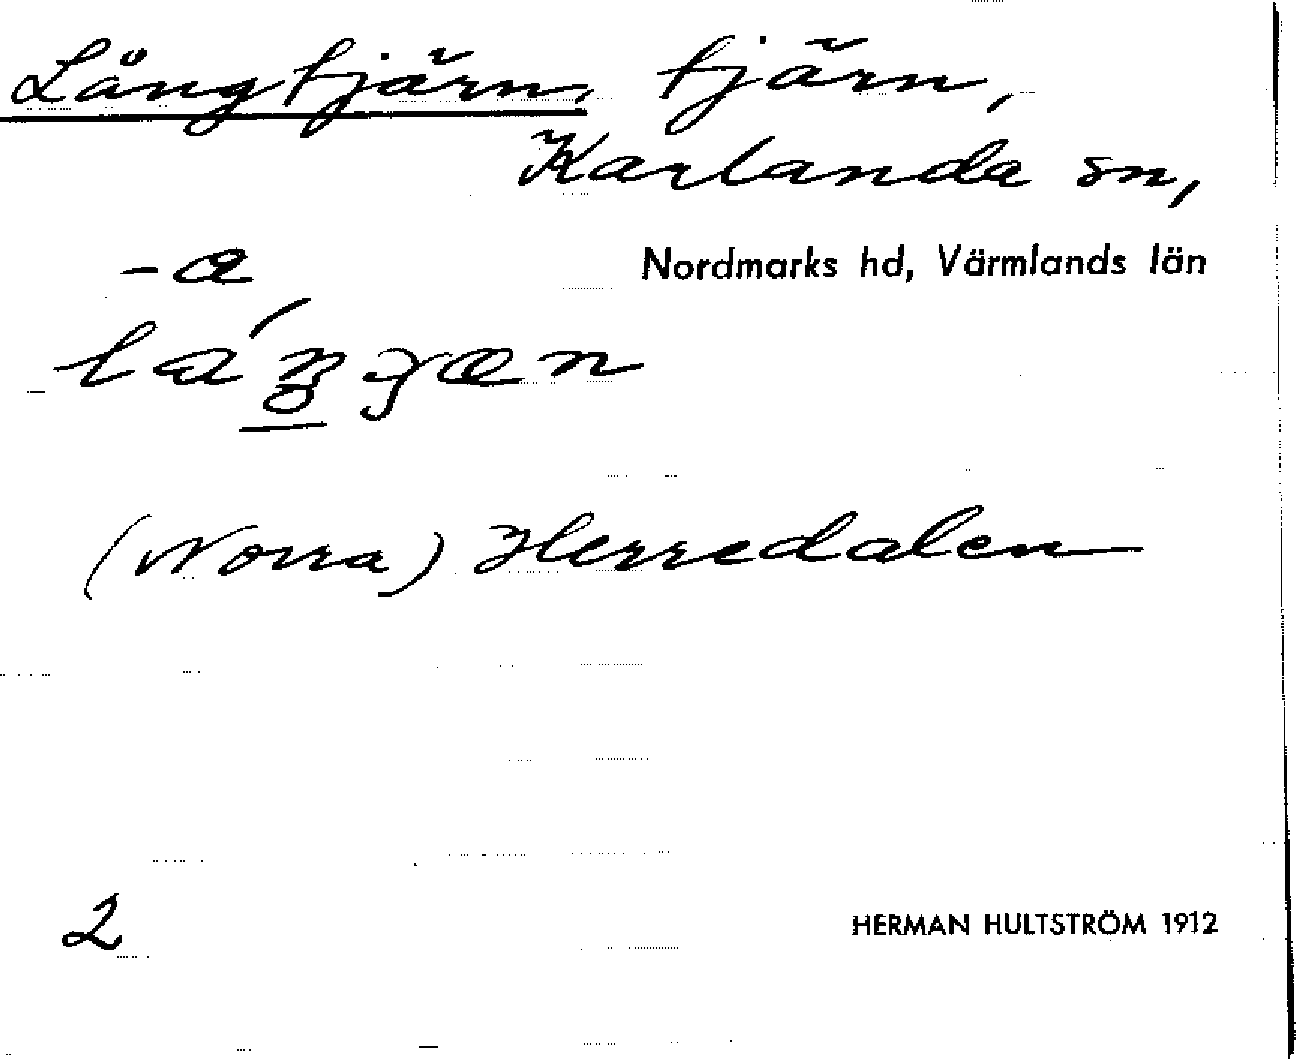 Långtjärn, tjärn,
Karlanda sn,
-a
Nordmarks hd, Värmlands län
(Norra) Herredalen
2
HERMAN HULTSTRÖM 1912